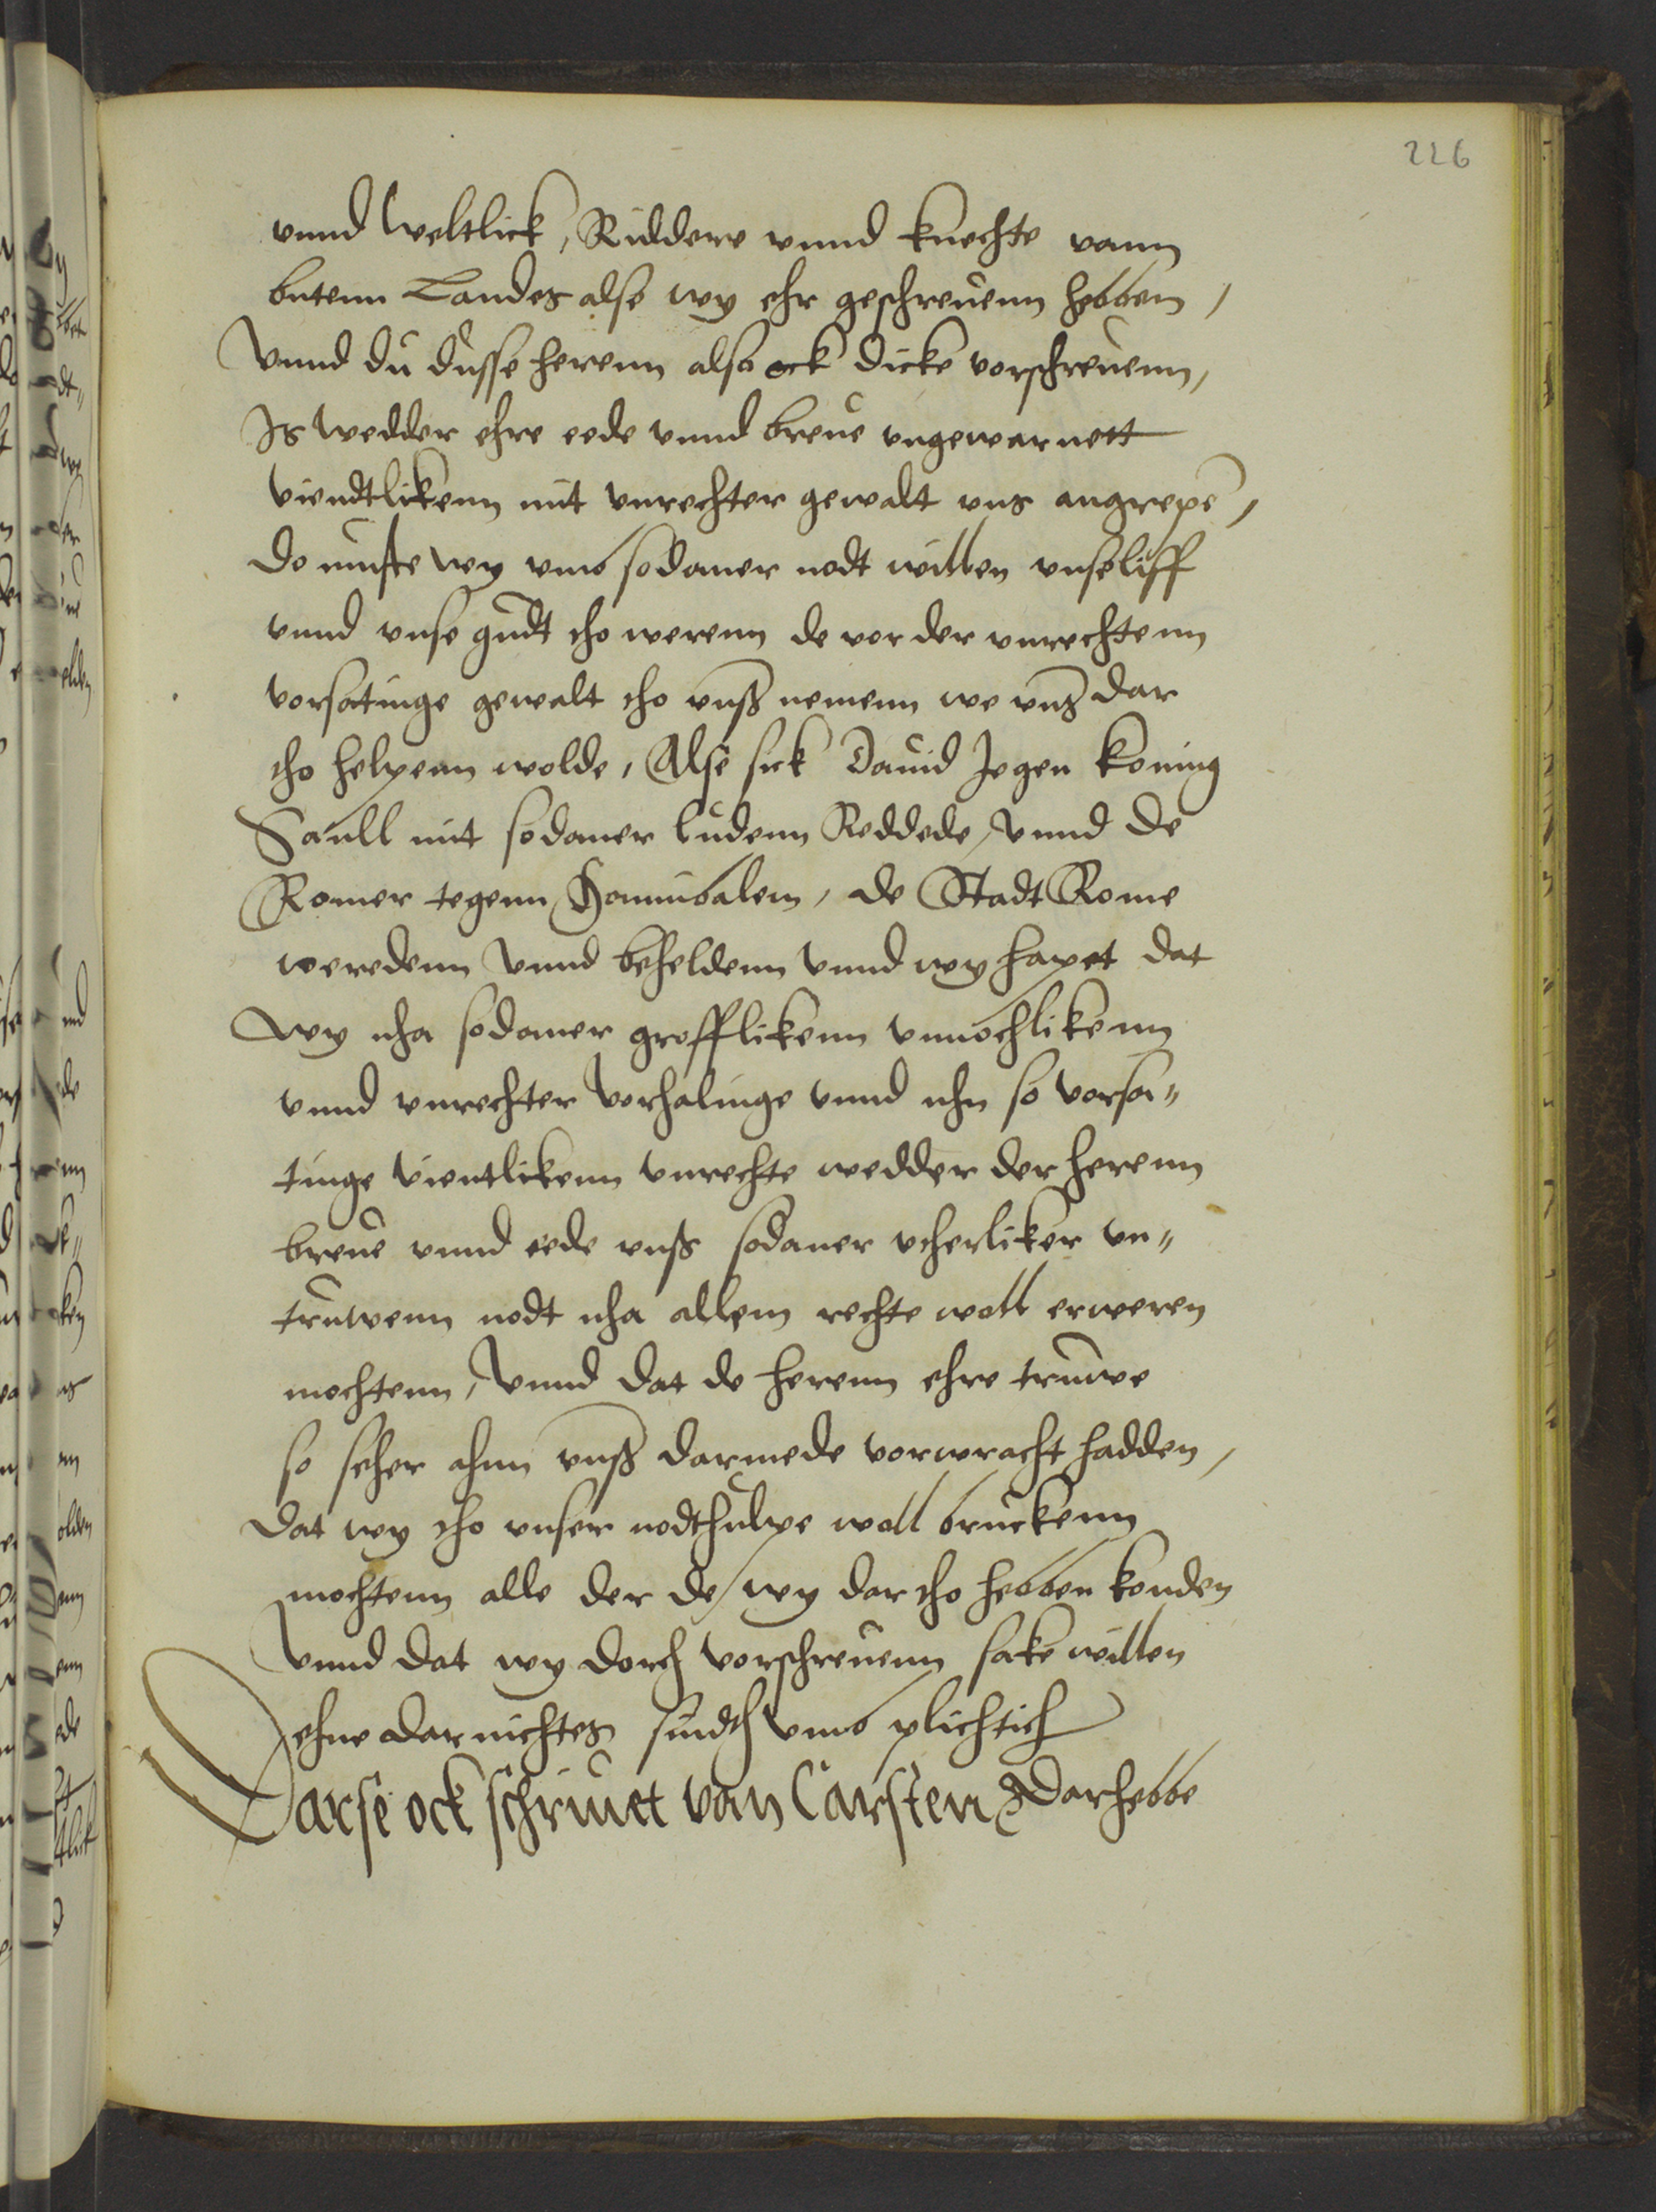 226
vnnd weltlick, Riddere vnnd knechte vann
butenn Landes alse wy ehr geschreuenn hebben,
Vnnd du dusse herenn also ock dicke vorschreuenn,
Js wedder ehre eede vnnd breue vngewarnett
viendtlikenn mit vnrechter gewalt vns angrepe,
do muste wy vmb sodaner nodt willen vnse liff
vnnd vnse gudt tho werenn de vor der vnrechtenn
vorsatinge gewalt tho vnß nemenn we vnß dar
tho helpenn wolde, Alse sick Dauid Jegen koning
Saull mit sodaner ludenn Reddede, vnnd de
Romer tegenn Hannibalem, de Stadt Rome
weredenn vnnd beheldenn vnnd wy hapet dat
wy nha sodaner grofflikenn vnmochlikenn
vnnd vnrechter vorhalinge vnnd nhu so vorsa„
tinge vientlikenn vnrechte wedder der herenn
breue vnnd eede vnß sodaner vtherliker vn„
truwenn nodt nha allem rechte woll erweren
mochtenn, Vnnd dat de herenn ehre truwe
so seher ahnn vnß darmede vorwracht hadden,
dat wy tho vnser nodthulpe woll bruckenn
mochtenn alle der de wy dar tho hebben konden
Vnnd dat wy dorch vorschreuenn sake willen
ehne dar nichtes sindth vmb plichtich
Darse ock schriuet van Carsten &c dar hebbe